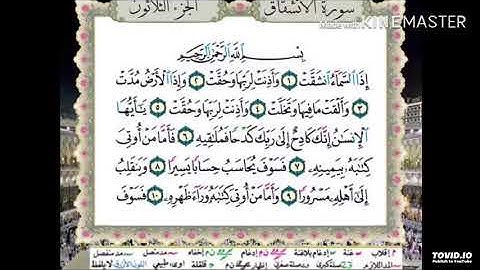 سورة الانشقاق
الجزء الثلاثون
Made with KINEMASTER
بِسْمِ اللَّهِ الرَّحْمَٰنِ الرَّحِيمِ
إِذَا السَّمَاءُ انشَقَّتْ ١ وَأَذِنَتْ لِرَبِّهَا وَحُقَّتْ ٢ وَإِذَا الْأَرْضُ مُدَّتْ
٣ وَأَلْقَتْ مَا فِيهَا وَتَخَلَّتْ ٤ وَأَذِنَتْ لِرَبِّهَا وَحُقَّتْ ٥ يَا أَيُّهَا
الْإِنسَانُ إِنَّكَ كَادِحٌ إِلَىٰ رَبِّكَ كَدْحًا فَمُلَاقِيهِ ٦ فَأَمَّا مَنْ أُوتِيَ
كِتَابَهُ بِيَمِينِهِ ٧ فَسَوْفَ يُحَاسَبُ حِسَابًا يَسِيرًا ٨ وَيَنقَلِبُ
إِلَىٰ أَهْلِهِ مَسْرُورًا ٩ وَأَمَّا مَنْ أُوتِيَ كِتَابَهُ وَرَاءَ ظَهْرِهِ ١٠ فَسَوْفَ
TOVID.IO
Publish to YouTube